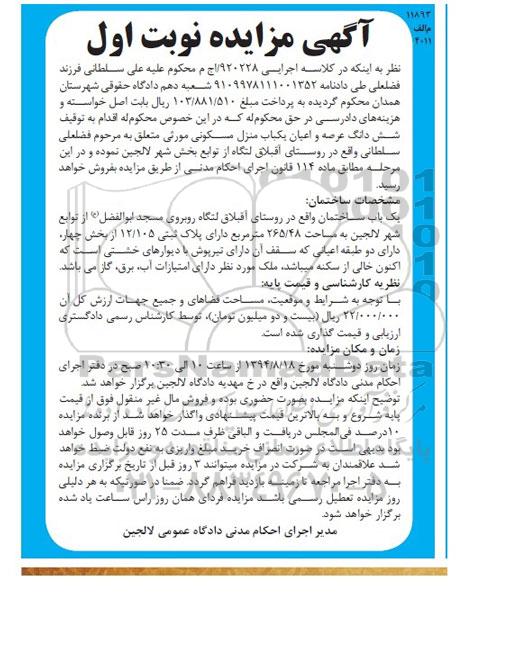 ۱۱۸۹۳
م‌الف
۲۰۱۱
آگهی مزایده نوبت اول
نظر به اینکه در کلاسه اجرایی ۹۲۰۲۲۸/اج م محکوم علیه علی سلطانی فرزند
فضلعلی طی دادنامه ۹۱۰۹۹۷۸۱۱۱۰۰۱۳۵۲ شعبه دهم دادگاه حقوقی شهرستان
همدان محکوم گردیده به پرداخت مبلغ ۱۰۳/۸۸۱/۵۱۰ ریال بابت اصل خواسته و
هزینه‌های دادرسی در حق محکوم‌له که در این خصوص محکوم‌له اقدام به توقیف
شش دانگ عرصه و اعیان یکباب منزل مسکونی مورثی متعلق به مرحوم فضلعلی
سلطانی واقع در روستای آقبلاق لتگاه از توابع بخش شهر لالجین نموده و در این
مرحله مطابق ماده ۱۱۴ قانون اجرای احکام مدنی از طریق مزایده بفروش خواهد
رسید.
مشخصات ساختمان:
یک باب ساختمان واقع در روستای آقبلاق لتگاه روبروی مسجد ابوالفضل(ع) از توابع
شهر لالجین به مساحت ۲۶۵/۴۸ مترمربع دارای پلاک ثبتی ۱۲/۱۰۵ از بخش چهار،
دارای دو طبقه اعیانی که سقف آن دارای تیرپوش با دیوارهای خشتی است که
اکنون خالی از سکنه میباشد، ملک مورد نظر دارای امتیازات آب، برق، گاز می باشد.
نظریه کارشناسی و قیمت پایه:
با توجه به شرایط و موقعیت، مساحت فضاهای و جمیع جهات ارزش کل آن
۲۲/۰۰۰/۰۰۰ ریال (بیست و دو میلیون تومان)، توسط کارشناس رسمی دادگستری
ارزیابی و قیمت گذاری شده است.
زمان و مکان مزایده:
زمان روز دوشنبه مورخ ۱۳۹۴/۸/۱۸ از ساعت ۱۰ الی ۱۰:۳۰ صبح در دفتر اجرای
احکام مدنی دادگاه لالجین واقع در خ مهدیه دادگاه لالجین برگزار خواهد شد.
توضیح اینکه مزایده بصورت حضوری بوده و فروش مال غیر منقول فوق از قیمت
پایه شروع و به بالاترین قیمت پیشنهادی واگذار خواهد شد از برنده مزایده
۱۰درصد فی‌المجلس دریافت و الباقی ظرف مدت ۲۵ روز قابل وصول خواهد
بود بدیهی است در صورت انصراف خرید مبلغ واریزی به نفع دولت ضبط خواهد
شد علاقمندان به شرکت در مزایده میتوانند ۳ روز قبل از تاریخ برگزاری مزایده
به دفتر اجرا مراجعه تا زمینه بازدید فراهم گردد. ضمنا در صورتیکه به هر دلیلی
روز مزایده تعطیل رسمی باشد مزایده فردای همان روز راس ساعت یاد شده
برگزار خواهد شود.
مدیر اجرای احکام مدنی دادگاه عمومی لالجین
ParsNamadData